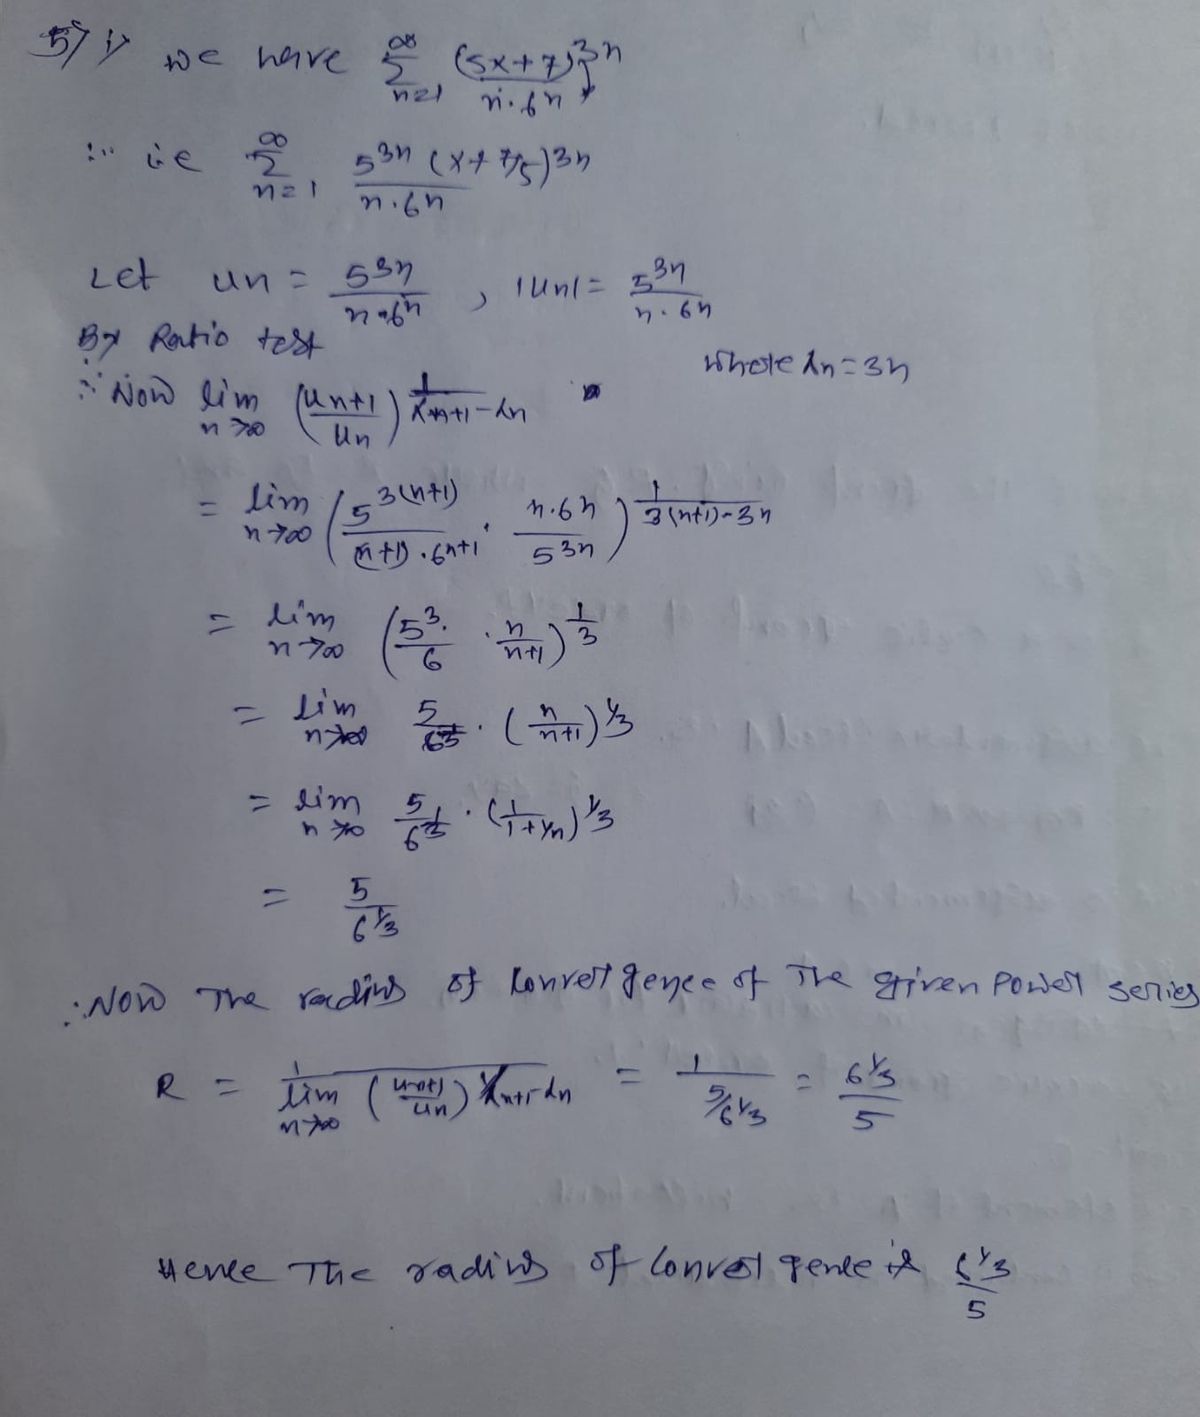 5) i) we have ∑_{n=1}^{∞} (5x+7)^{3n} / n·6^n
∴ i.e ∑_{n=1}^{∞} 5^{3n} (x+7/5)^{3n} / n·6^n
Let un = 5^{3n} / n·6^n , |un| = 5^{3n} / n·6^n
By Ratio test
where λn = 3n
∴ Now lim_{n→∞} (un+1 / un)^{1/(λn+1 - λn)}
= lim_{n→∞} (5^{3(n+1)} / (n+1)·6^{n+1} · n·6^n / 5^{3n})^{1/(3(n+1)-3n)}
= lim_{n→∞} (5^3/6 · n/(n+1))^{1/3}
= lim_{n→∞} 5/6^{1/3} · (n/(n+1))^{1/3}
= lim_{n→∞} 5/6^{1/3} · (1/(1+1/n))^{1/3}
= 5/6^{1/3}
∴ Now The radius of convergence of The given Power series
R = 1 / lim_{n→∞} (un+1 / un)^{1/(λn+1 - λn)} = 1 / (5/6^{1/3}) = 6^{1/3} / 5
Hence The radius of convergence is 6^{1/3} / 5